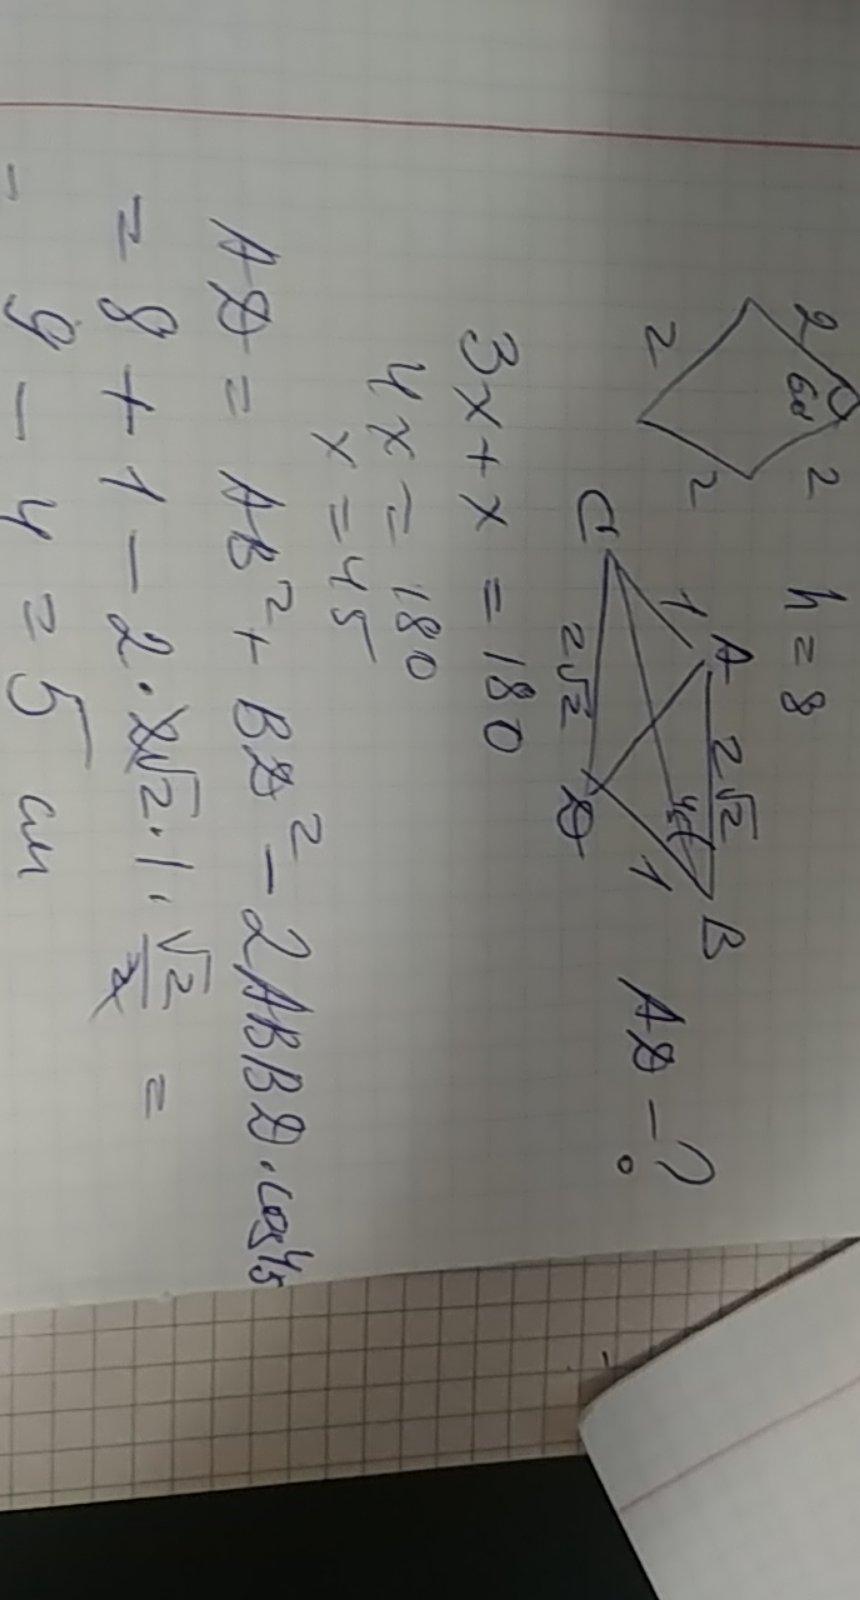 2
60°
2
2
2
h = 8
A
2√2
B
1
45
1
C
2√2
D
AD - ?
3x + x = 180
4x = 180
x = 45
AD = AB² + BD² - 2ABBD · cos45
= 8 + 1 - 2 · 2√2 · 1 · √2/2 =
= 9 - 4 = 5 см